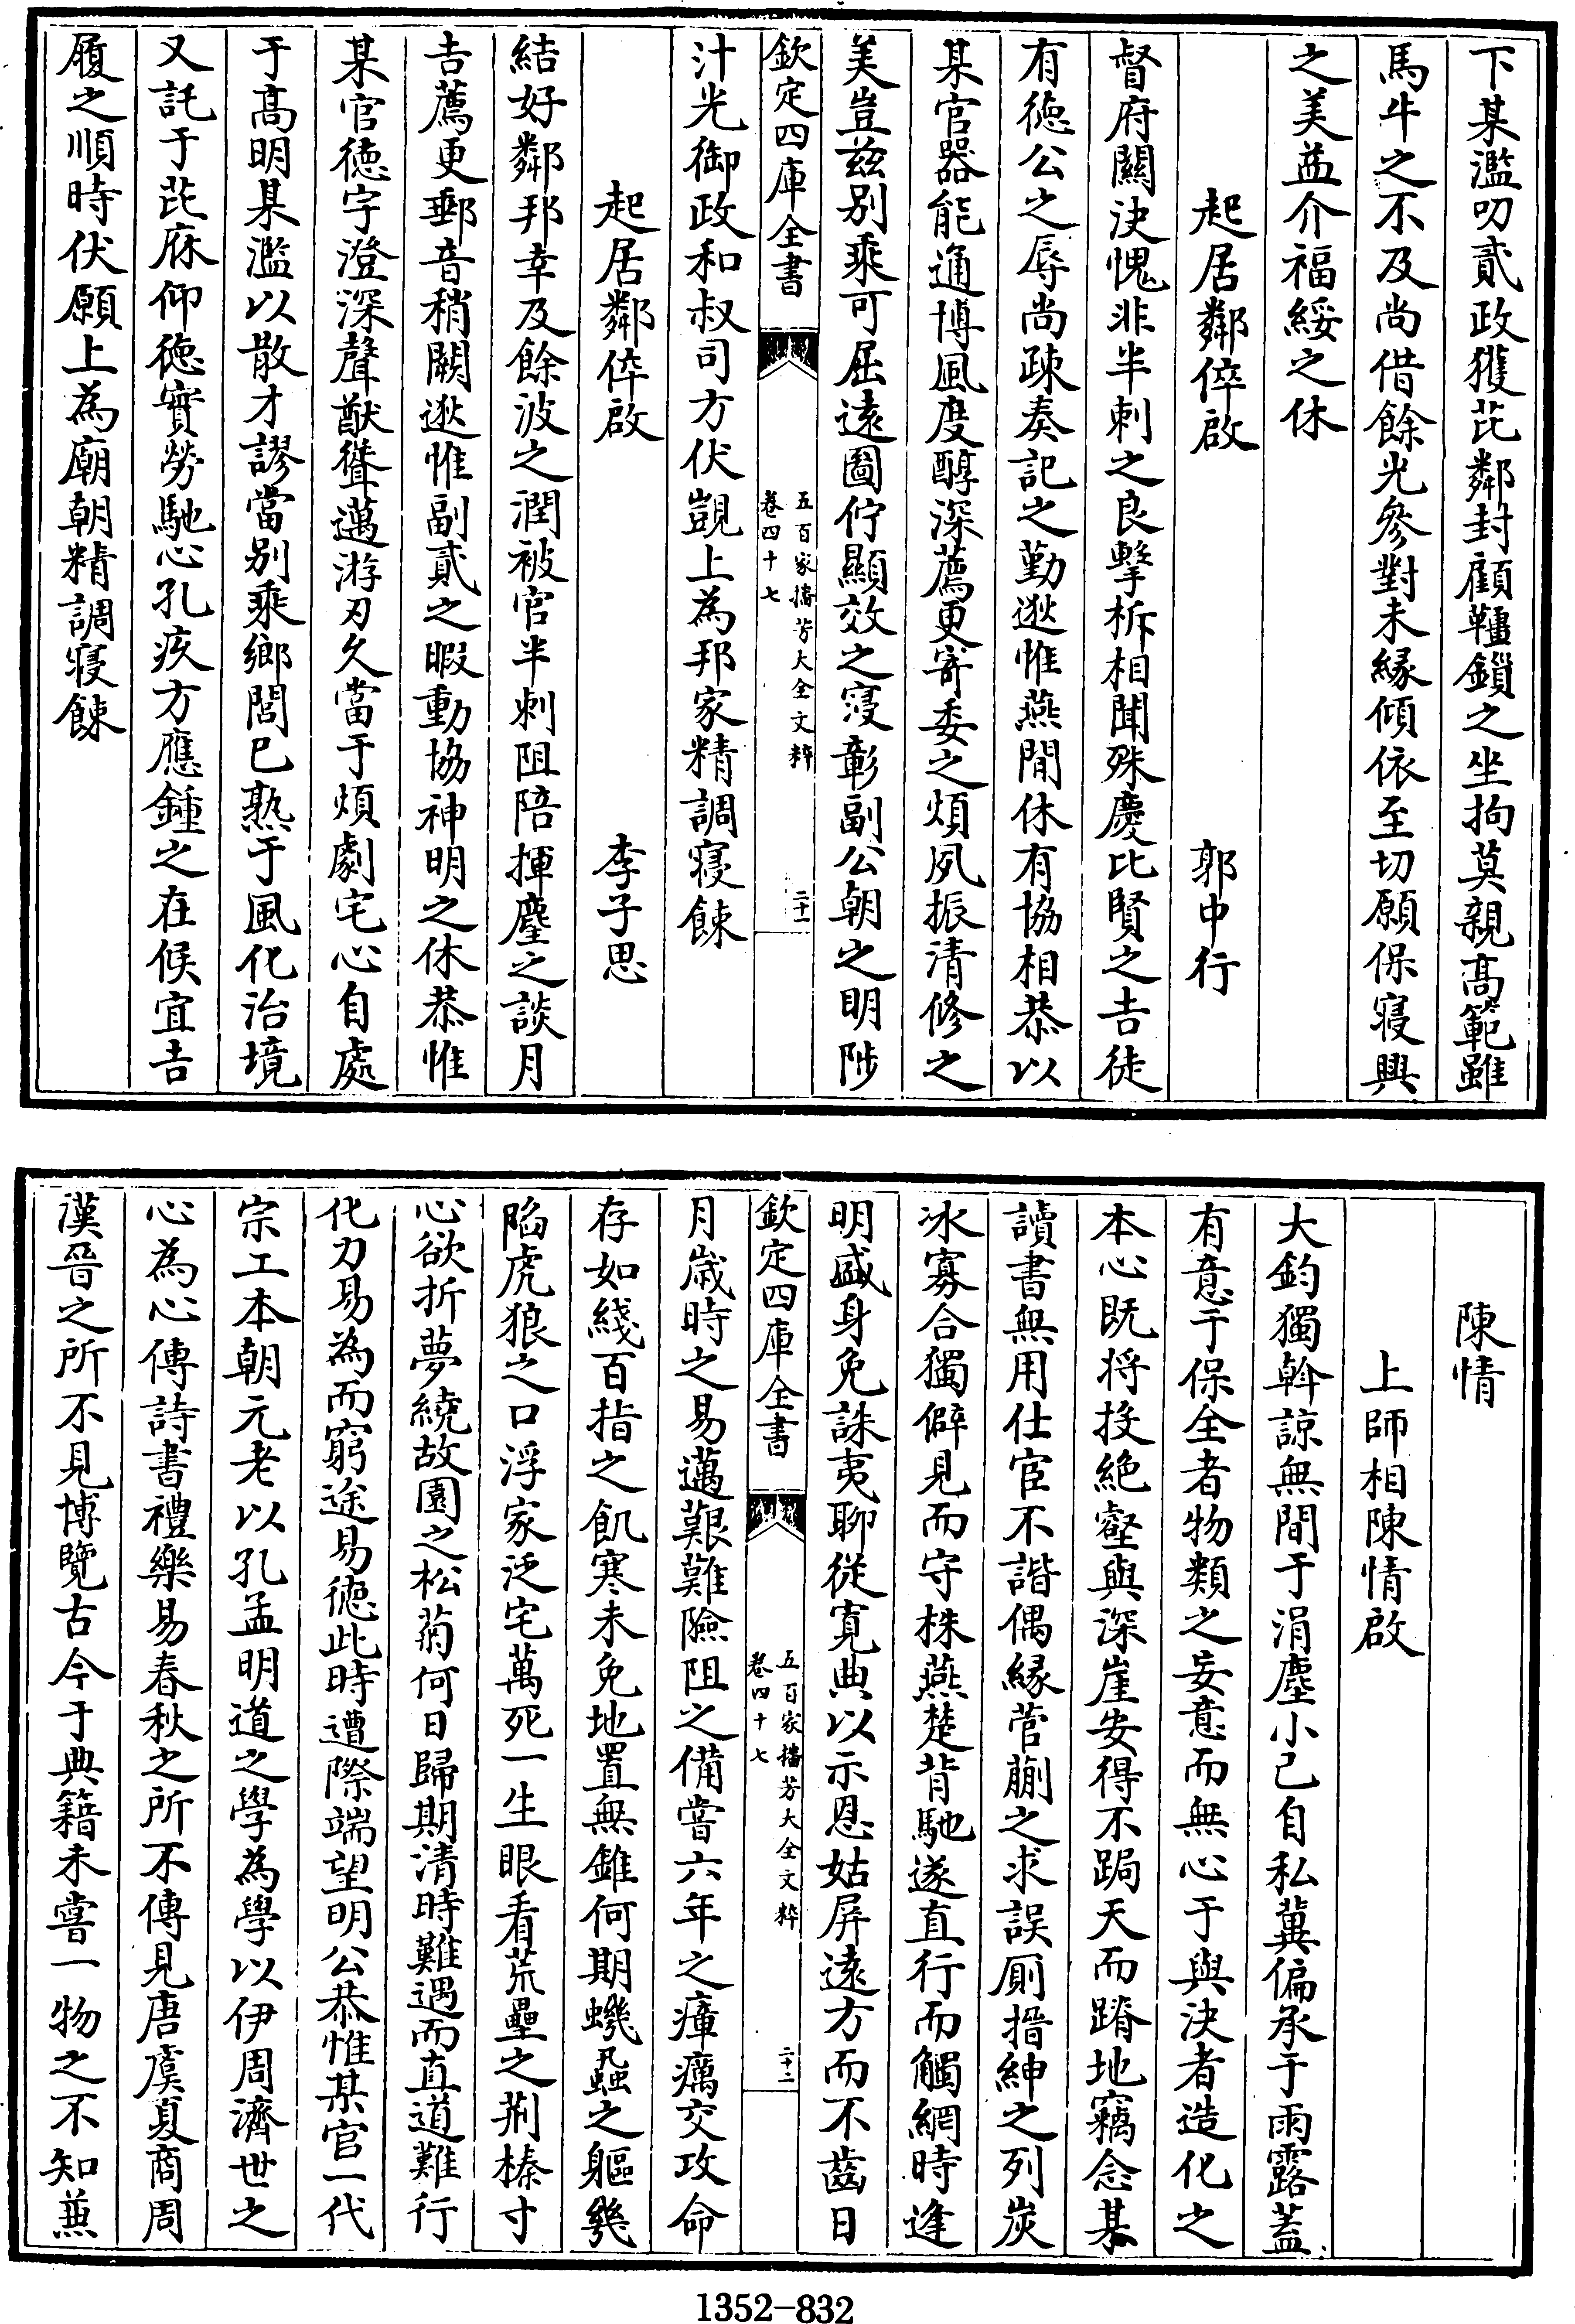 下某濫叨貳政獲芘鄰封顧韁鎖之坐拘莫親髙範雖
馬牛之不及尚借餘光參對未縁傾依至切願保寢興
之美益介福綏之休
起居鄰倅啟　郭中行
督府闗決愧非半刺之良擊柝相聞殊慶比賢之吉徒
有徳公之辱尚疎奏記之勤逖惟燕閒休有協相恭以
某官器能通博風度醇深薦更寄委之煩夙振清修之
美豈兹别乘可屈逺圖佇顯效之寖彰副公朝之明陟
欽定四庫全書
五百家播芳大全文粹
卷四十七
二十一
汁光御政和叔司方伏覬上為邦家精調寢餗
起居鄰倅啟　李子思
結好鄰邦幸及餘波之潤被官半刺阻陪揮麈之談月
吉薦更郵音稍闕逖惟副貳之暇動協神明之休恭惟
某官徳宇澄深聲猷聳邁游刃久當于煩劇宅心自處
于髙明某濫以散才謬當别乘鄉閭已熟于風化治境
又託于芘庥仰徳實勞馳心孔疚方應鍾之在候宜吉
履之順時伏願上為廟朝精調寢餗
陳情
上師相陳情啟
大鈞獨斡諒無間于涓塵小己自私冀偏承于雨露葢
有意于保全者物類之妄意而無心于與決者造化之
本心既将投絶壑與深崖安得不跼天而蹐地竊念某
讀書無用仕宦不諧偶縁菅蒯之求誤厠搢紳之列炭
冰寡合獨僻見而守株燕楚背馳遂直行而觸網時逢
明盛身免誅夷聊從寛典以示恩姑屏逺方而不齒日
欽定四庫全書
五百家播芳大全文粹
卷四十七
二十二
月歳時之易邁艱難險阻之備嘗六年之瘴癘交攻命
存如綫百指之飢寒未免地置無錐何期蟣蝨之軀幾
陷虎狼之口浮家泛宅萬死一生眼看荒壘之荆榛寸
心欲折夢繞故園之松菊何日歸期清時難遇而直道難行
化力易為而窮途易徳此時遭際端望明公恭惟某官一代
宗工本朝元老以孔孟明道之學為學以伊周濟世之
心為心傳詩書禮樂易春秋之所不傳見唐虞夏商周
漢晉之所不見博覽古今于典籍未嘗一物之不知兼
1352-832